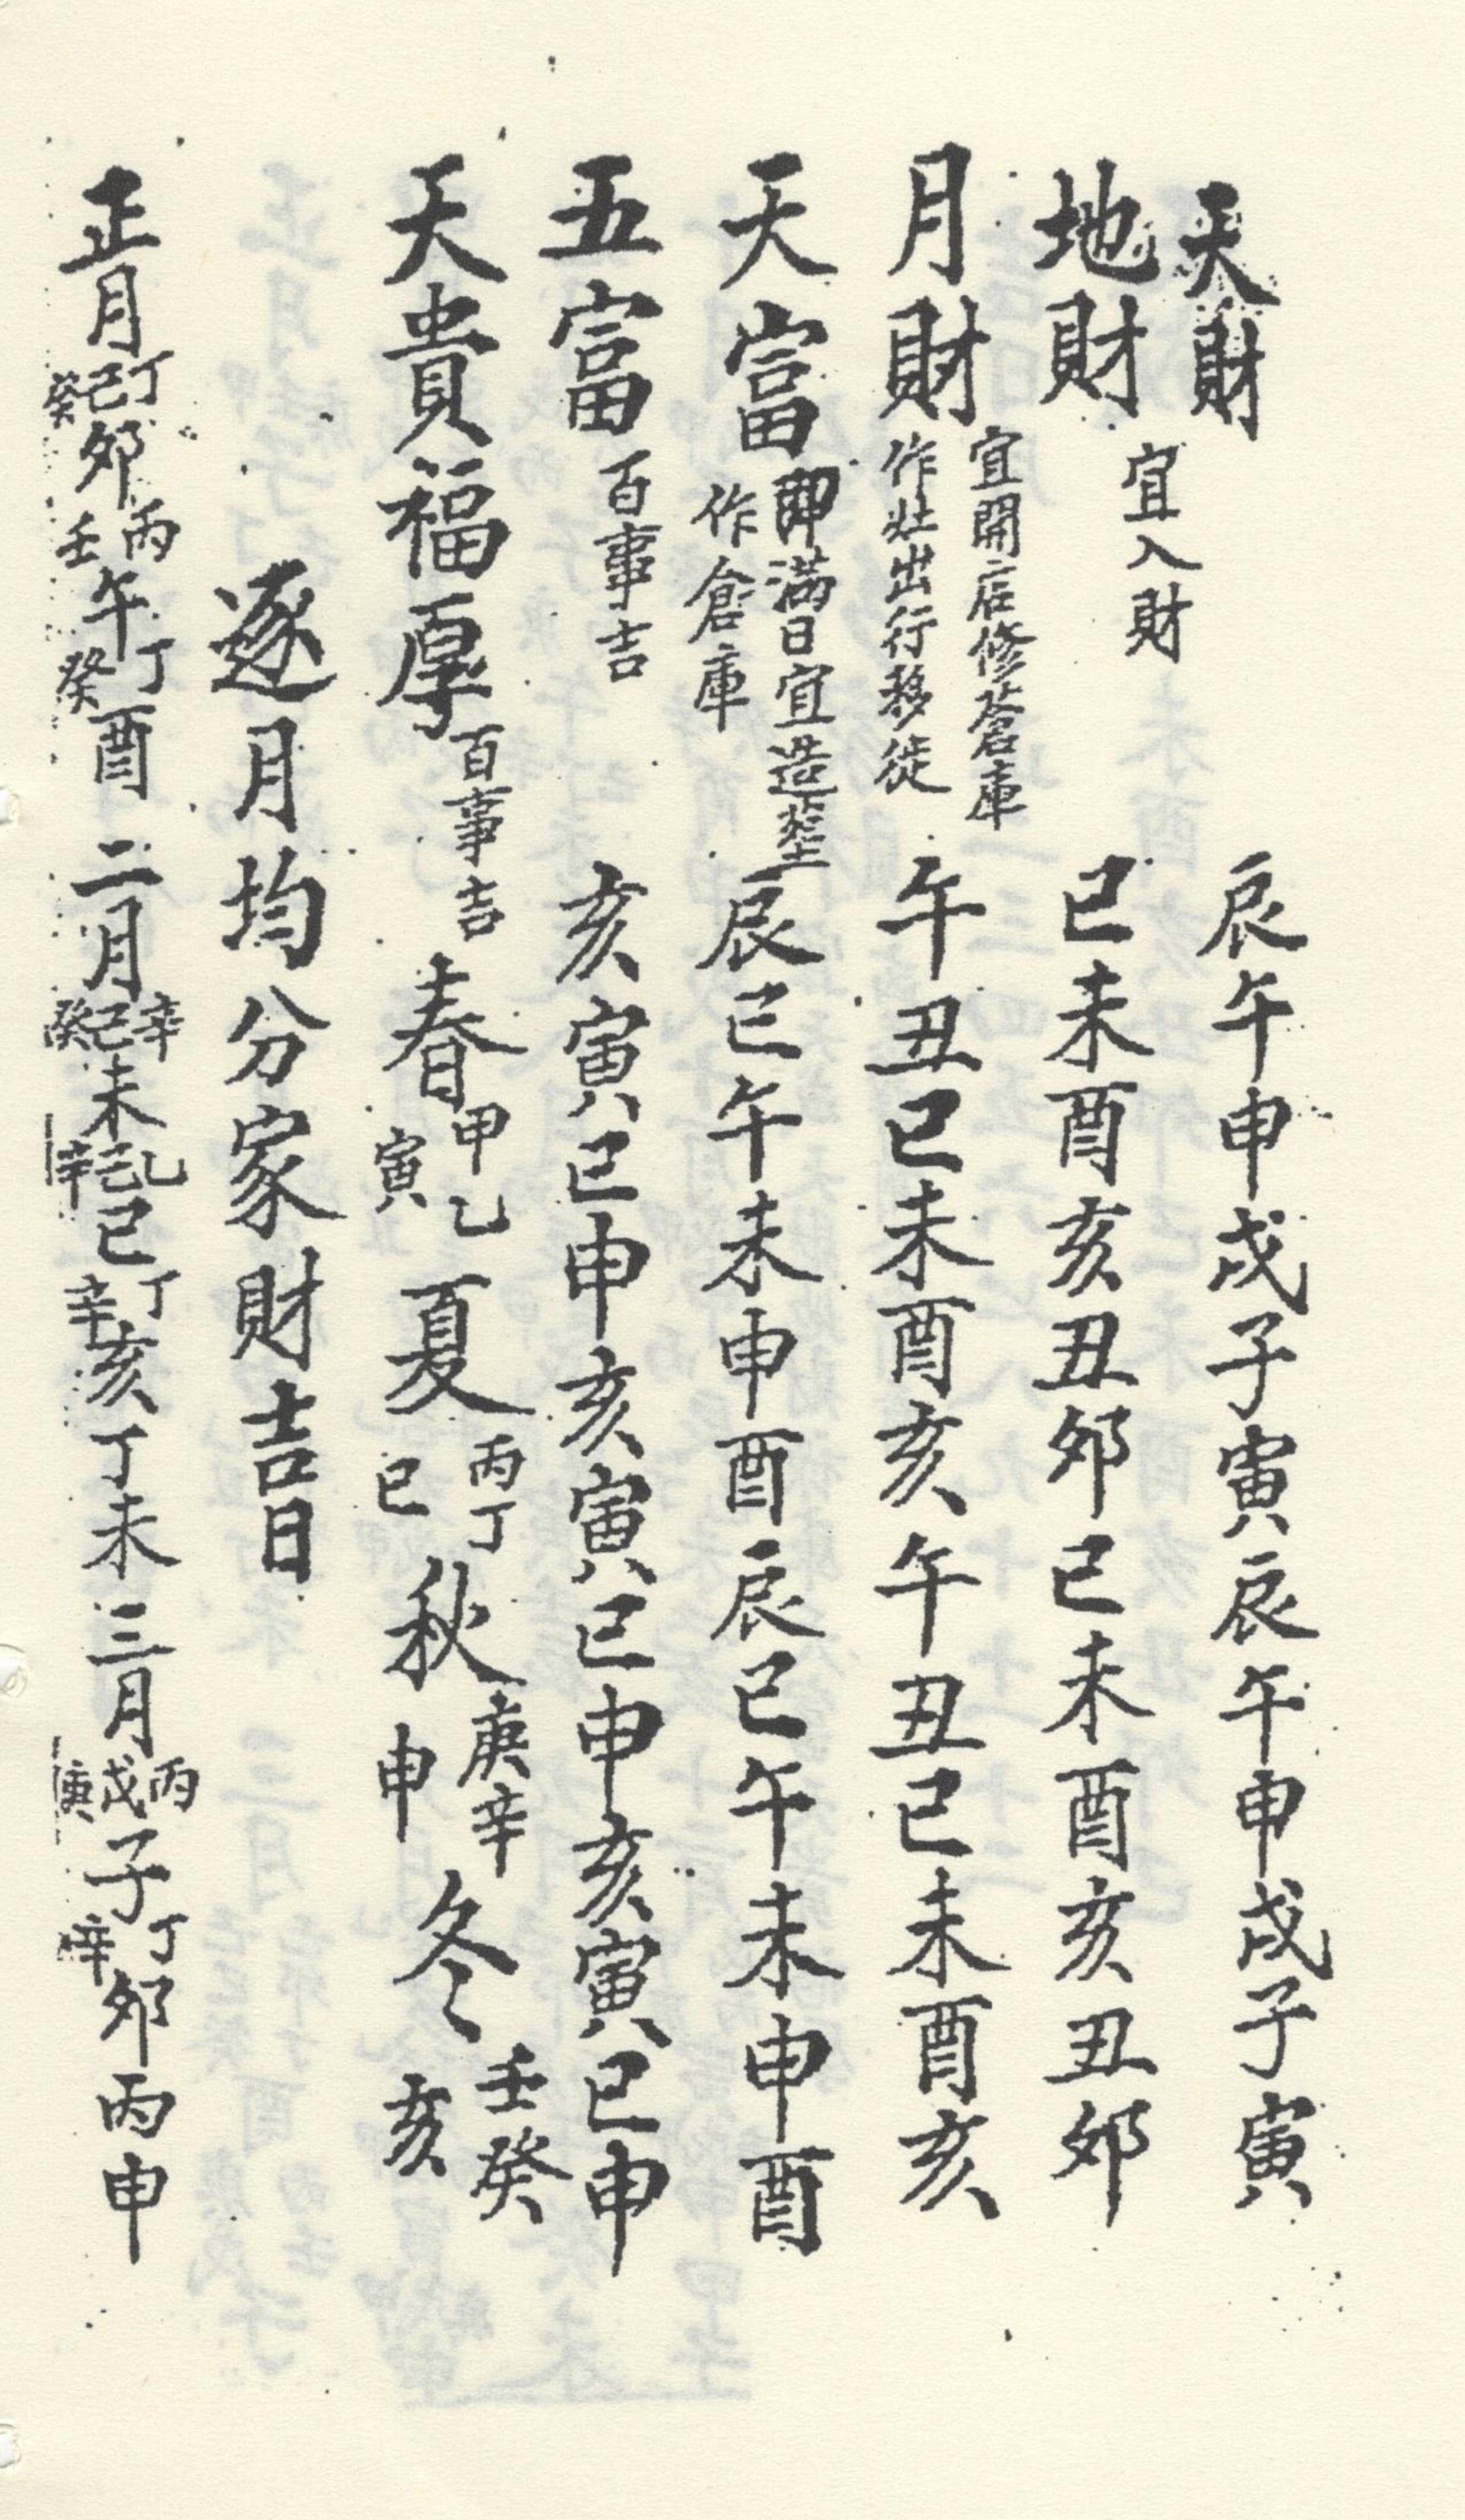 天財 辰午申戌子寅辰午申戌子寅
宜入財
地財 巳未酉亥丑卯巳未酉亥丑卯
月財 宜開店修蒼庫 作灶出行移徙 午丑巳未酉亥午丑巳未酉亥
天富 即滿日宜造塟 作倉庫 辰巳午未申酉辰巳午未申酉
五富 百事吉 亥寅巳申亥寅巳申亥寅巳申
天貴福厚 百事吉 春 甲乙 寅 夏 丙丁 巳 秋 庚辛 申 冬 壬癸 亥
逐月均分家財吉日
正月 丁己癸 卯 丙壬 午 丁癸 酉 二月 辛己癸 未 乙己辛 巳 丁辛 亥 丁未 三月 丙戊庚 子 丁辛 卯 丙申